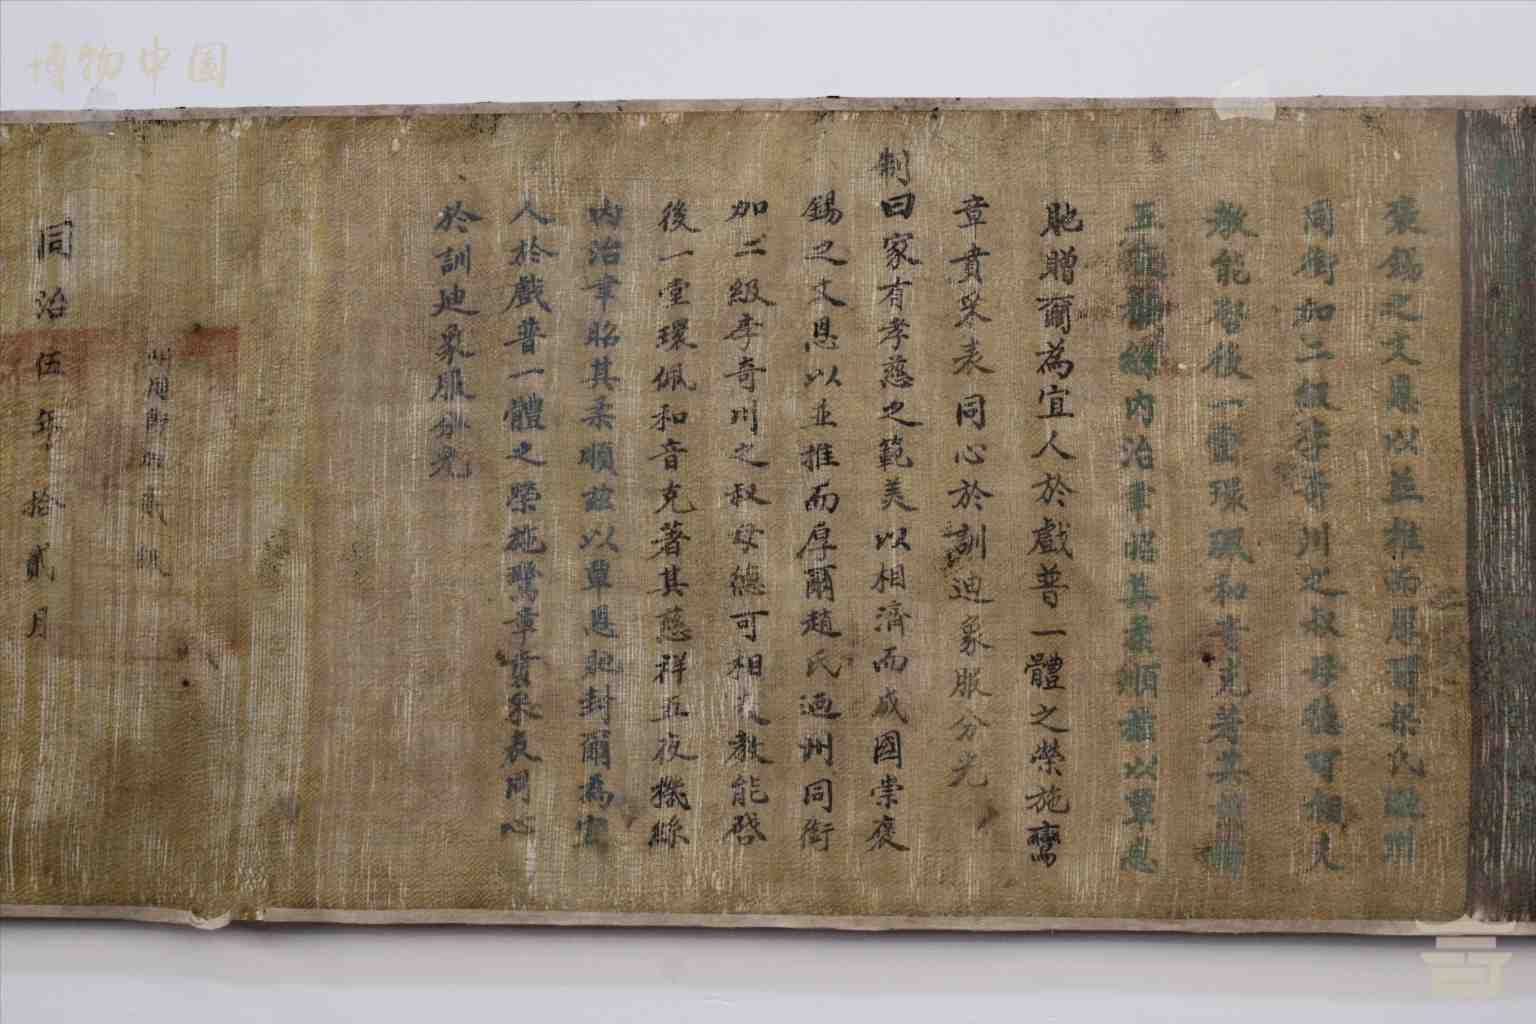 博物中国
褒錫之文恩以並推而厚爾梁氏迺州
同銜加二級李奇川之叔母德可相夫
教能啓後一堂環珮和音克著其慈祥
五夜機絲內治聿昭其柔順茲以覃恩
貤贈爾為宜人於戲普一體之榮施鸞
章賁采表同心於訓迪象服分光
制
曰家有孝慈之範美以相濟而成國崇褒
錫之文恩以並推而厚爾趙氏迺州同銜
加二級李奇川之叔母德可相夫教能啓
後一堂環佩和音克著其慈祥五夜機絲
內治聿昭其柔順茲以覃恩貤封爾為宜
人於戲普一體之榮施鸞章賁采表同心
於訓迪象服分光
同治伍年拾貳月